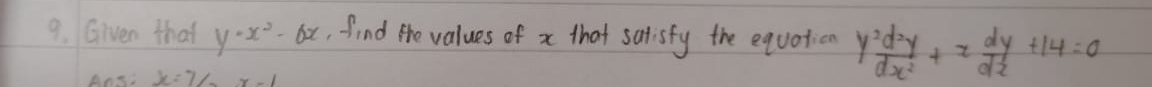 9. Given that y = x² - 6x, find the values of x that satisfy the equation y² d²y/dx² + x dy/dx + 14 = 0
Ans: x = 7/ x = 1